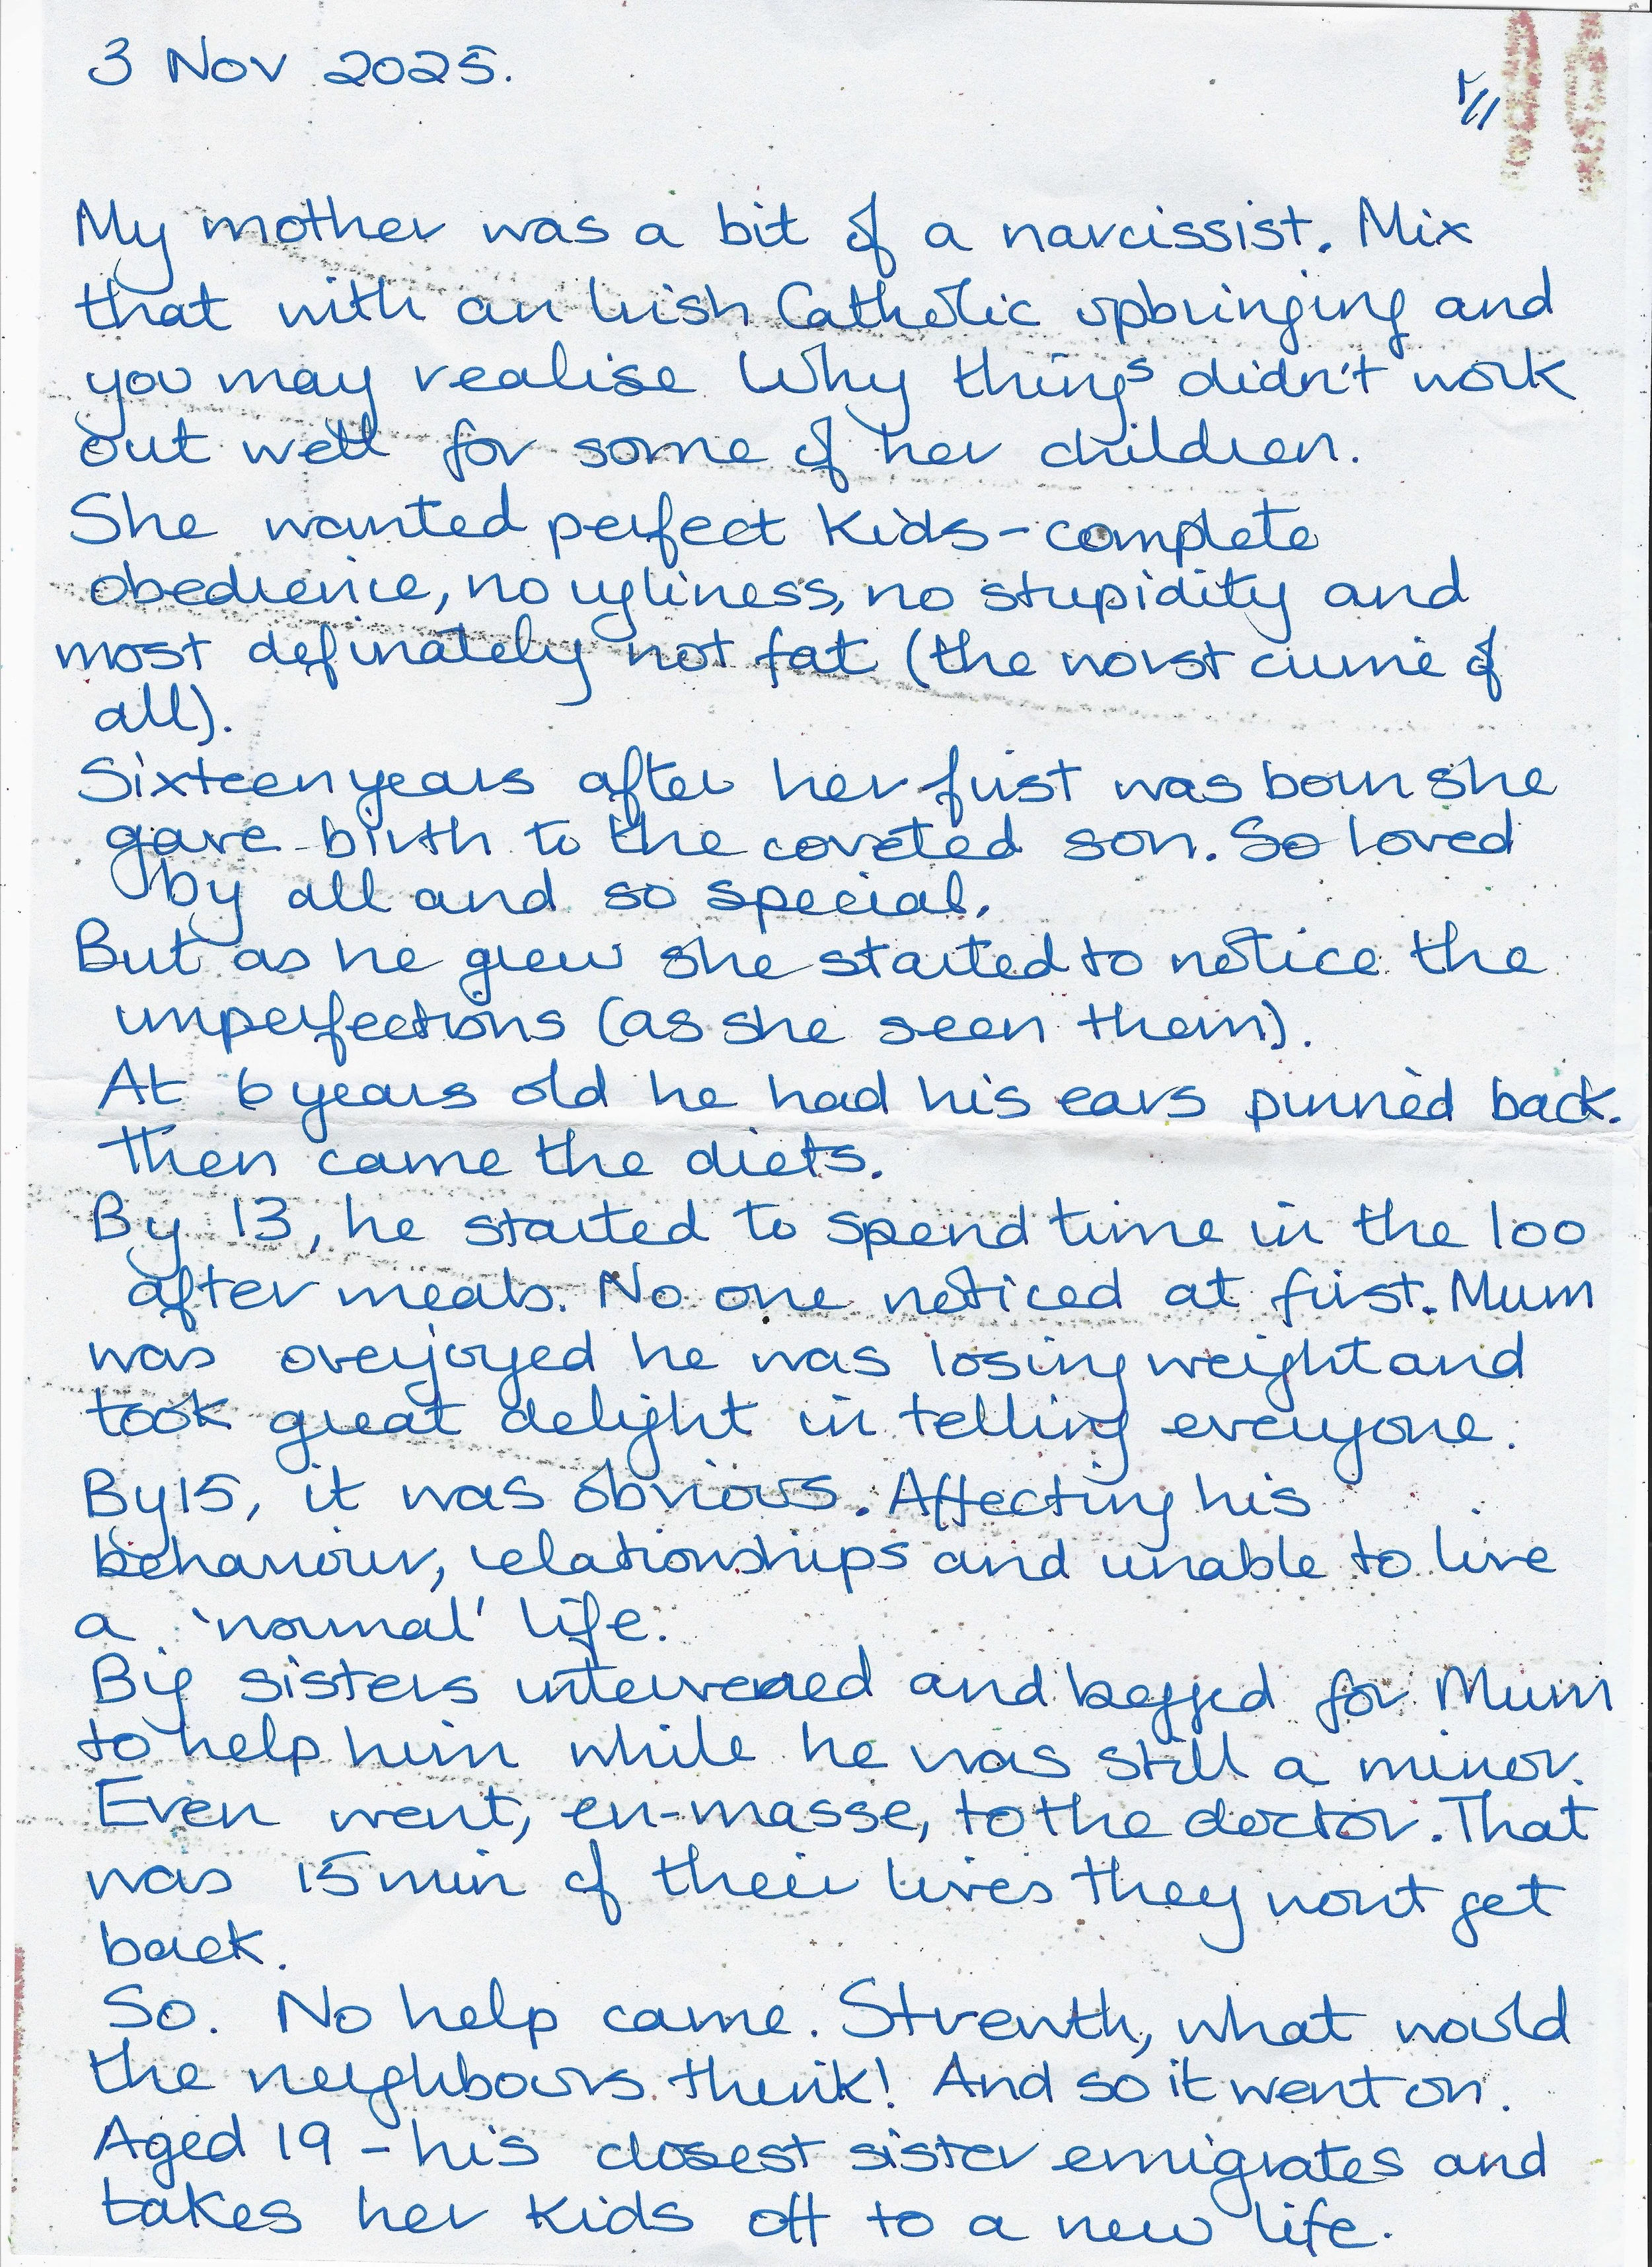 3 Nov 2025.
My mother was a bit of a narcissist. Mix
that with an Irish Catholic upbringing and
you may realise why things didn't work
out well for some of her children.
She wanted perfect kids - complete
obedience, no ugliness, no stupidity and
most definately not fat (the worst crime of
all).
Sixteen years after her first was born she
gave birth to the coveted son. So loved
by all and so special.
But as he grew she started to notice the
imperfections (as she seen them).
At 6 years old he had his ears pinned back.
Then came the diets.
By 13, he started to spend time in the loo
after meals. No one noticed at first. Mum
was overjoyed he was losing weight and
took great delight in telling everyone.
By 15, it was obvious. Affecting his
behaviour, relationships and unable to live
a 'normal' life.
Big sisters intervened and begged for Mum
to help him while he was still a minor.
Even went, en-masse, to the doctor. That
was 15 min of their lives they wont get
back.
So. No help came. Strenth, what would
the neighbours think! And so it went on.
Aged 19 - his closest sister emigrates and
takes her kids off to a new life.